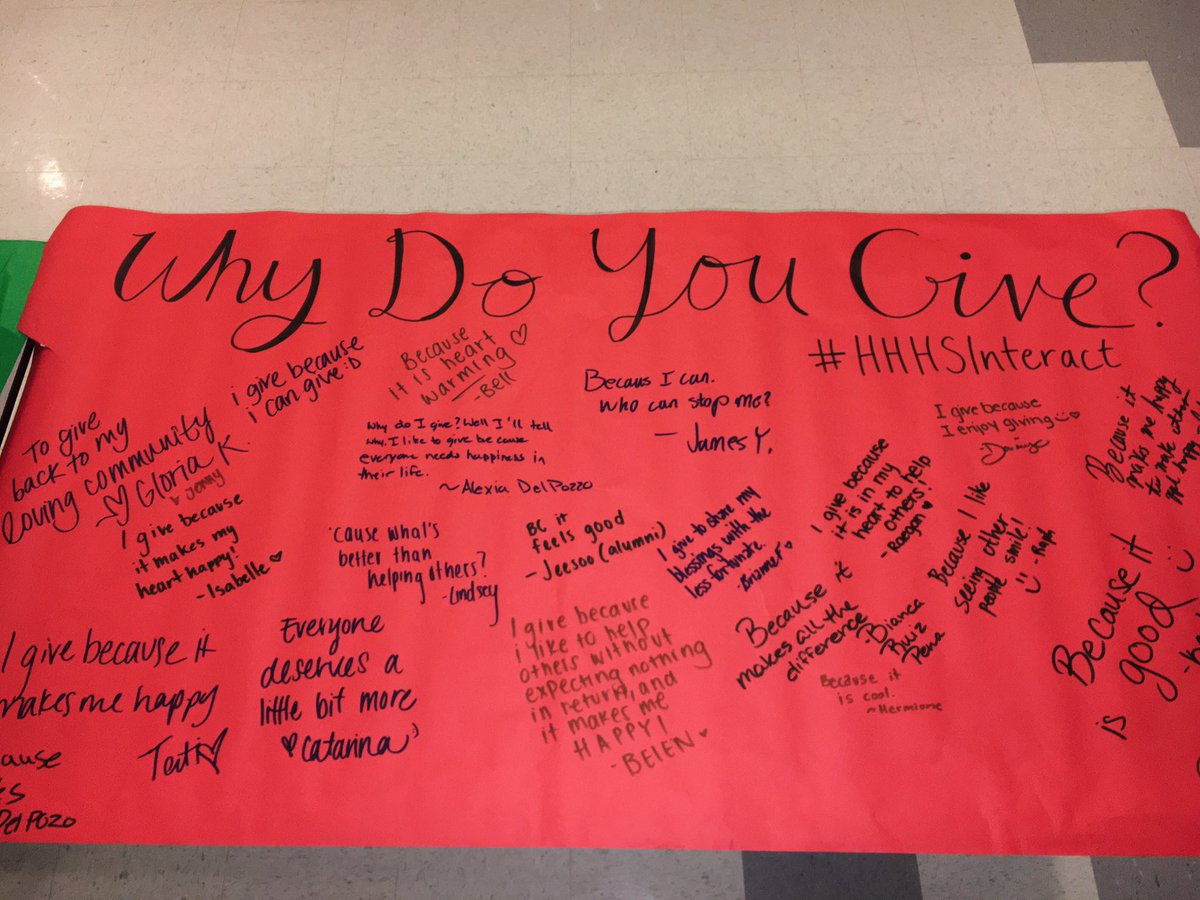 Why Do You Give?
#HHHSInteract
i give because
i can give :D
Because
it is heart
warming ♡
-Bell
Becaus I can.
Who can stop me?
- James Y.
I give because
I enjoy giving
Because it
makes me happy
to make other
To give
back to my
loving community
-♡ Gloria K.
♥ Jenny
Why do I give? Well I'll tell
why. I like to give because
everyone needs happiness in
their life.
~Alexia DelPozzo
I give because
it is in my
heart to help
others!
-Raegan ♥
I give because
it makes my
heart happy!
-Isabelle ♥
'Cause what's
better than
helping others?
-Lindsey
BC it
feels good
- Jeesoo (alumni)
I give to share my
blessings with the
less fortunate.
Because I like
seeing other
people smile!
Because it
is good
I give because it
makes me happy
Tati ♡
Everyone
deserves a
little bit more
♥ Catarina :)
I give because
i like to help
others without
expecting nothing
in return, and
it makes me
HAPPY!
-BELEN ♥
Because it
makes all the
difference
Bianca
Ruiz
Pena
Because it
is cool.
~Hermione
Del Pozo